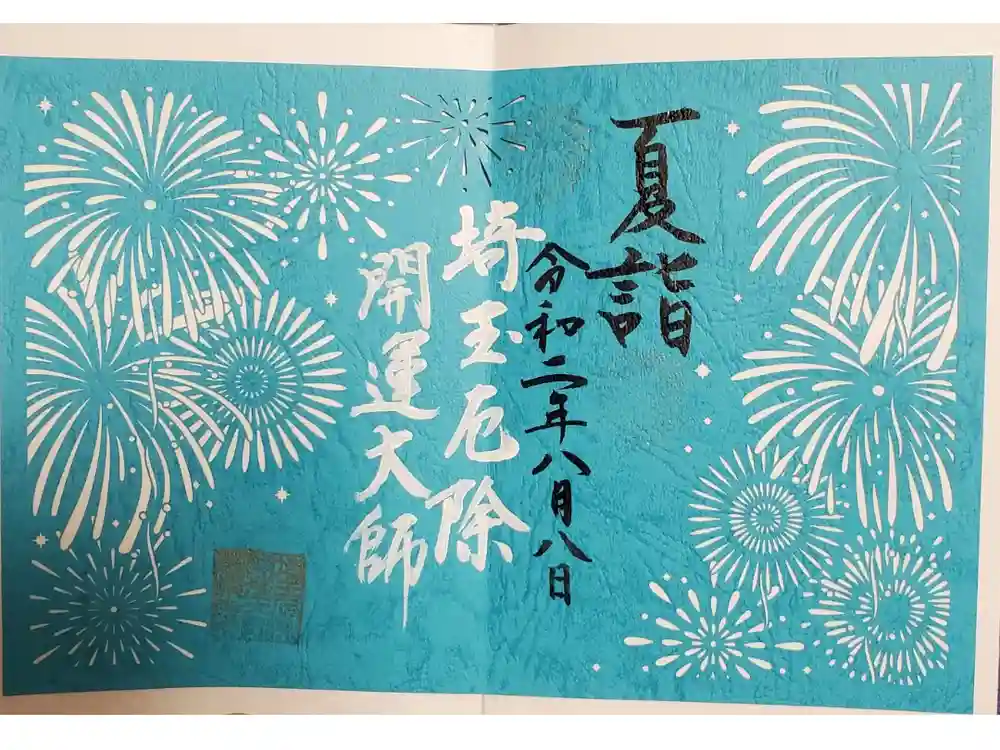 夏詣
令和二年八月八日
埼玉厄除
開運大師